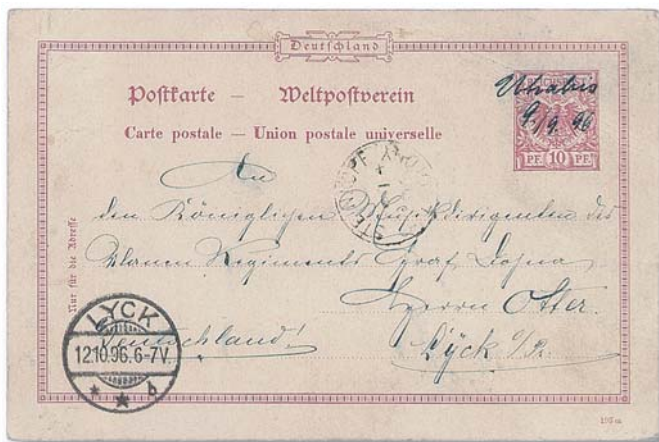 Deutschland
Postkarte — Weltpostverein
Carte postale — Union postale universelle
Uhabis
9./9. 96
PF. 10 PF.
An
den Königlichen Musikdirigenten des
Ulanen Regiments Graf Dohna
Herrn Otter.
Deutschland!
Lyck
Nur für die Adresse
LYCK
12.10.96.6-7V.
* * b